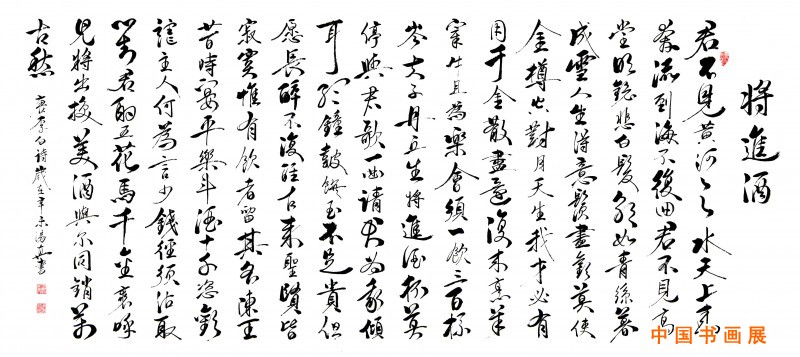 將進酒
君不見黄河之水天上來
奔流到海不復回君不見高
堂明鏡悲白髮朝如青絲暮
成雪人生得意須盡歡莫使
金樽空對月天生我才必有
用千金散盡還復來烹羊
宰牛且為樂會須一飲三百杯
岑夫子丹丘生將進酒杯莫
停與君歌一曲請君為我傾
耳聽鐘鼓饌玉不足貴但
願長醉不復醒古來聖賢皆
寂寞惟有飲者留其名陳王
昔時宴平樂斗酒十千恣歡
謔主人何為言少錢徑須沽取
對君酌五花馬千金裘呼
兒將出換美酒與爾同銷萬
古愁
唐李白詩歲在辛未
中国书画展